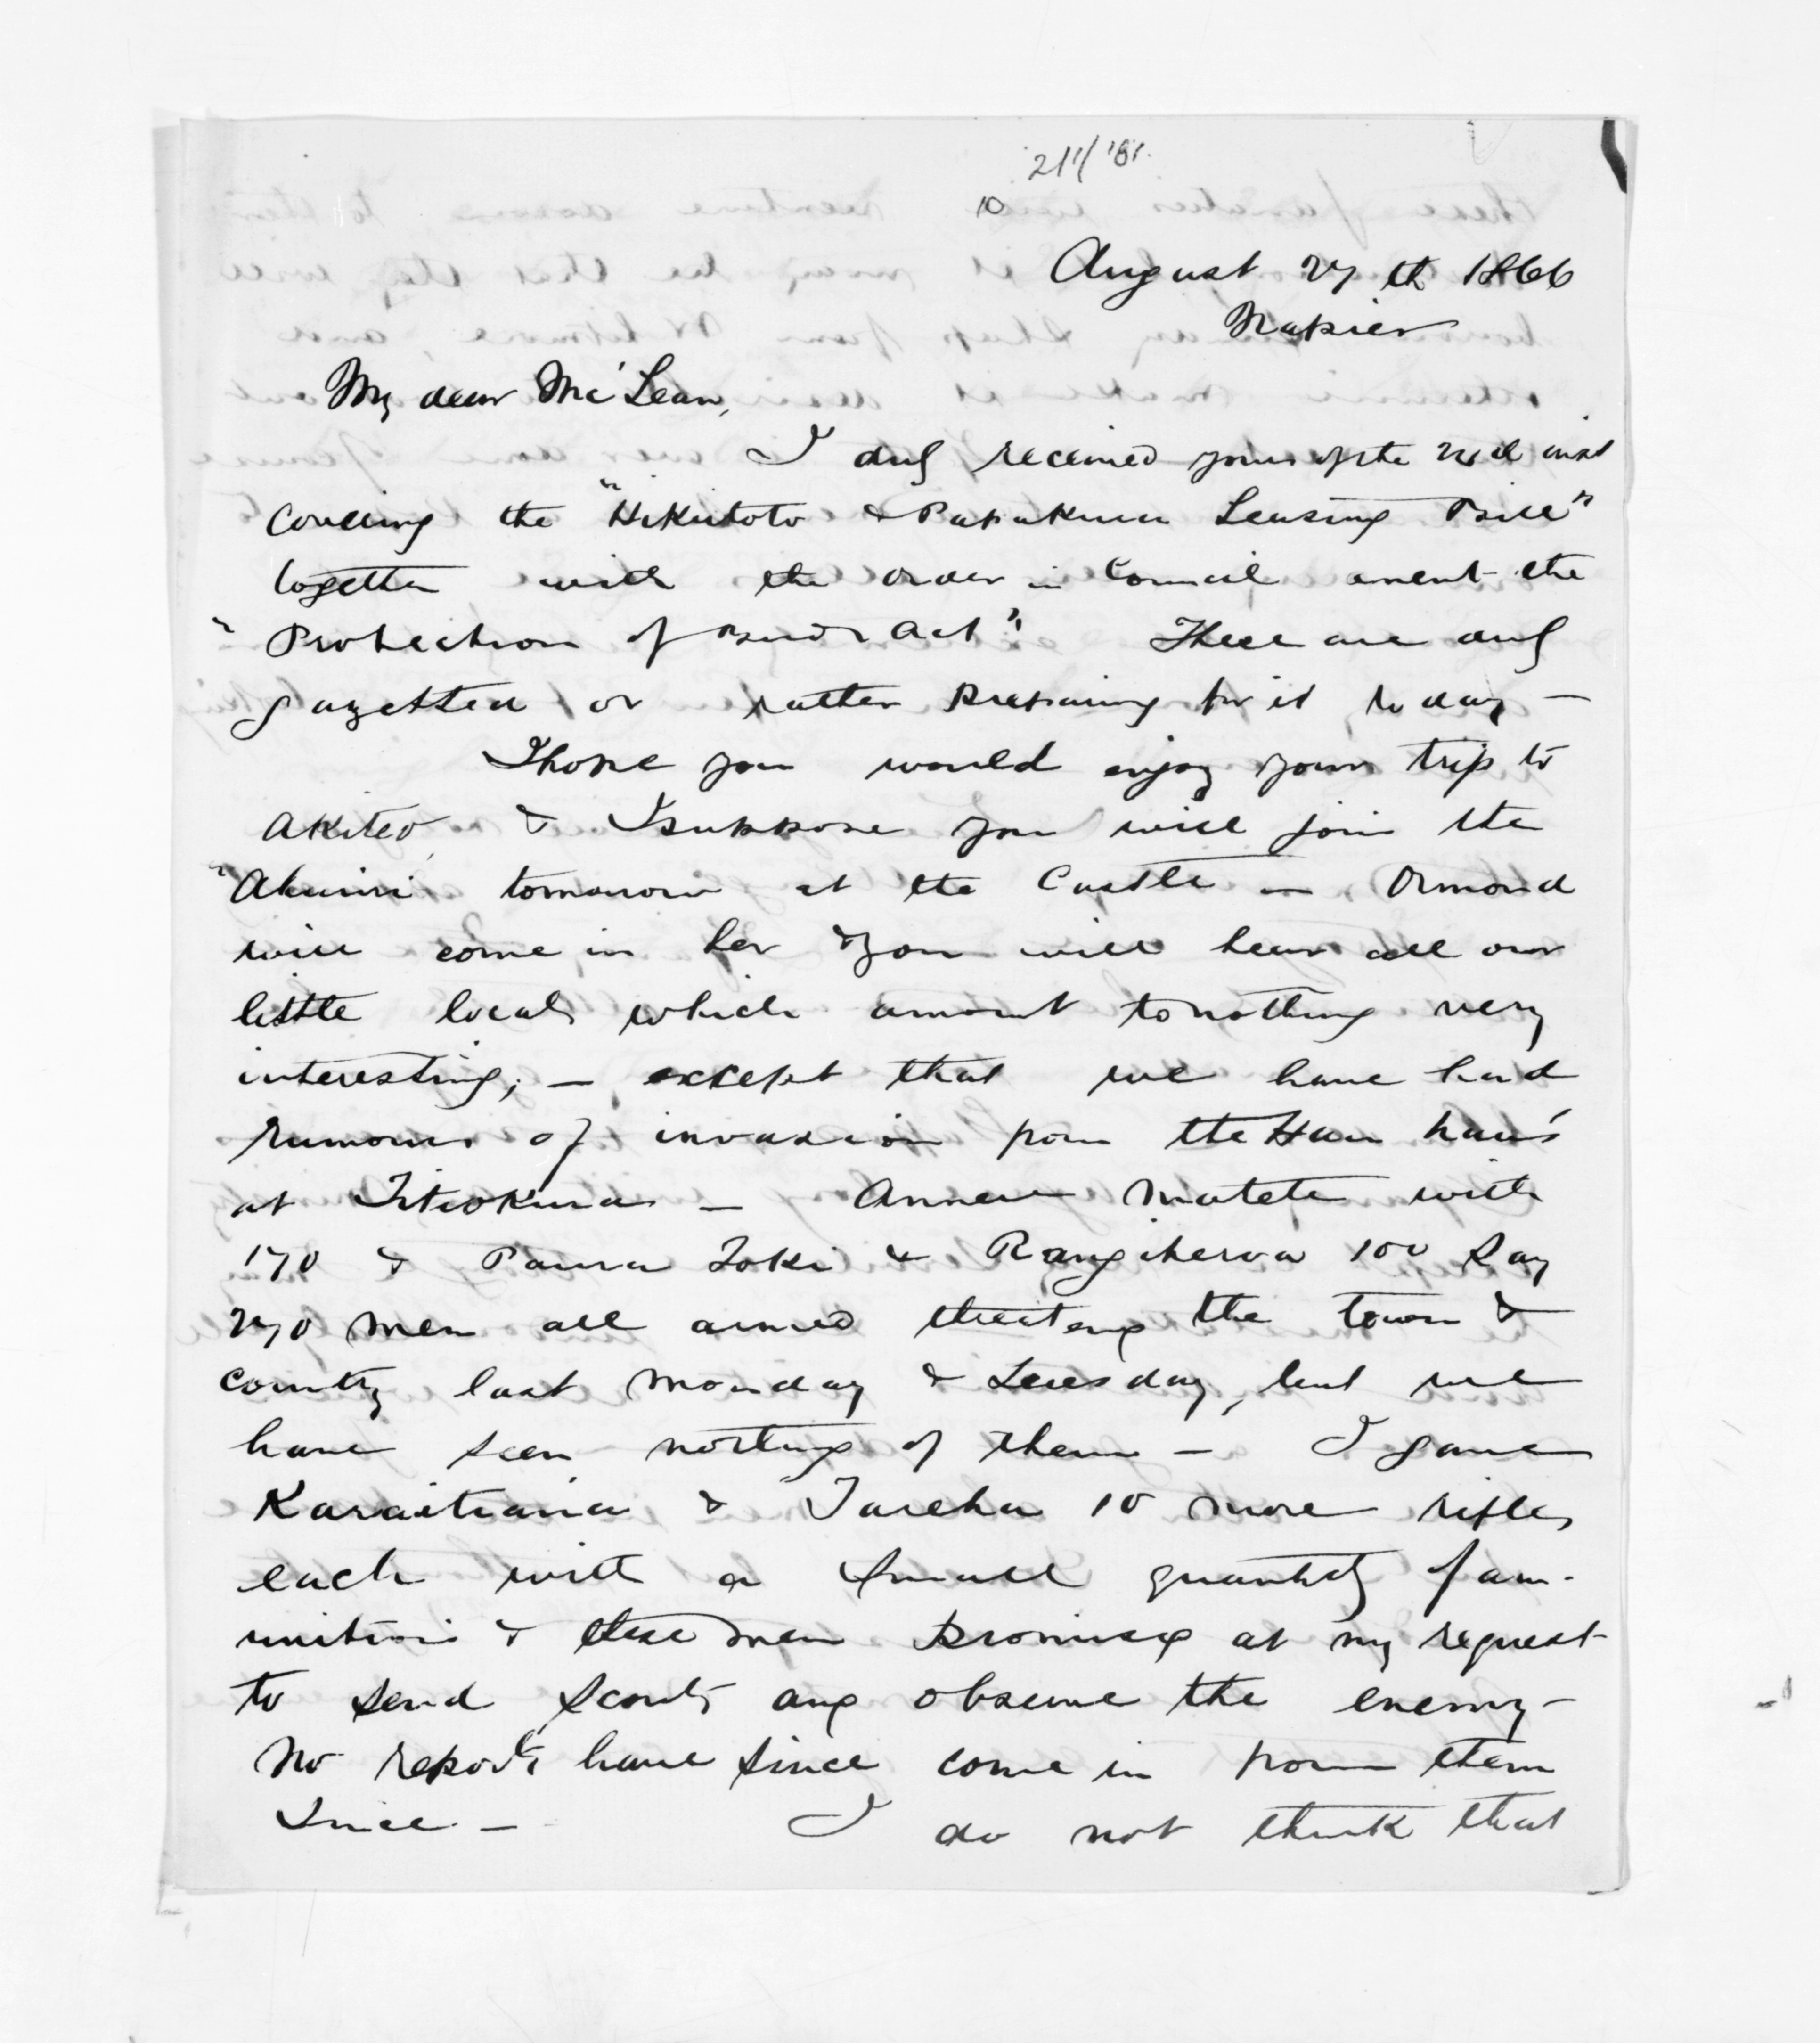 211/'81.
10
August 27th 1866
Napier
My dear McLean,
I duly received yours of the inst
covering the "Hikutoto & Papakura Leasing Bill"
together with the order in Council anent the
"Protection of Birds Act". These are duly
gazetted or rather preparing for it to day —
I hope you would enjoy your trip to
Akiteo & I suppose you will join the
"Ahuriri" tomorrow at the Castle — Ormond
will come in her & you will hear all our
little locals which amount to nothing very
interesting; — except that we have had
rumours of invasion from the Hau hau's
at Titiokura — Matete with
170 & Paura Toki & Rangihiroa 100 Say
270 men all armed threateng the town &
country last Monday & Tuesday, but we
have seen nothing of them — I gave
Karaitiana & Tareha 10 more rifles
each with a small quantity of am-
unition & these men promisg at my request
to send scouts and observe the enemy —
No reports have since come in from them
Since — I do not think that